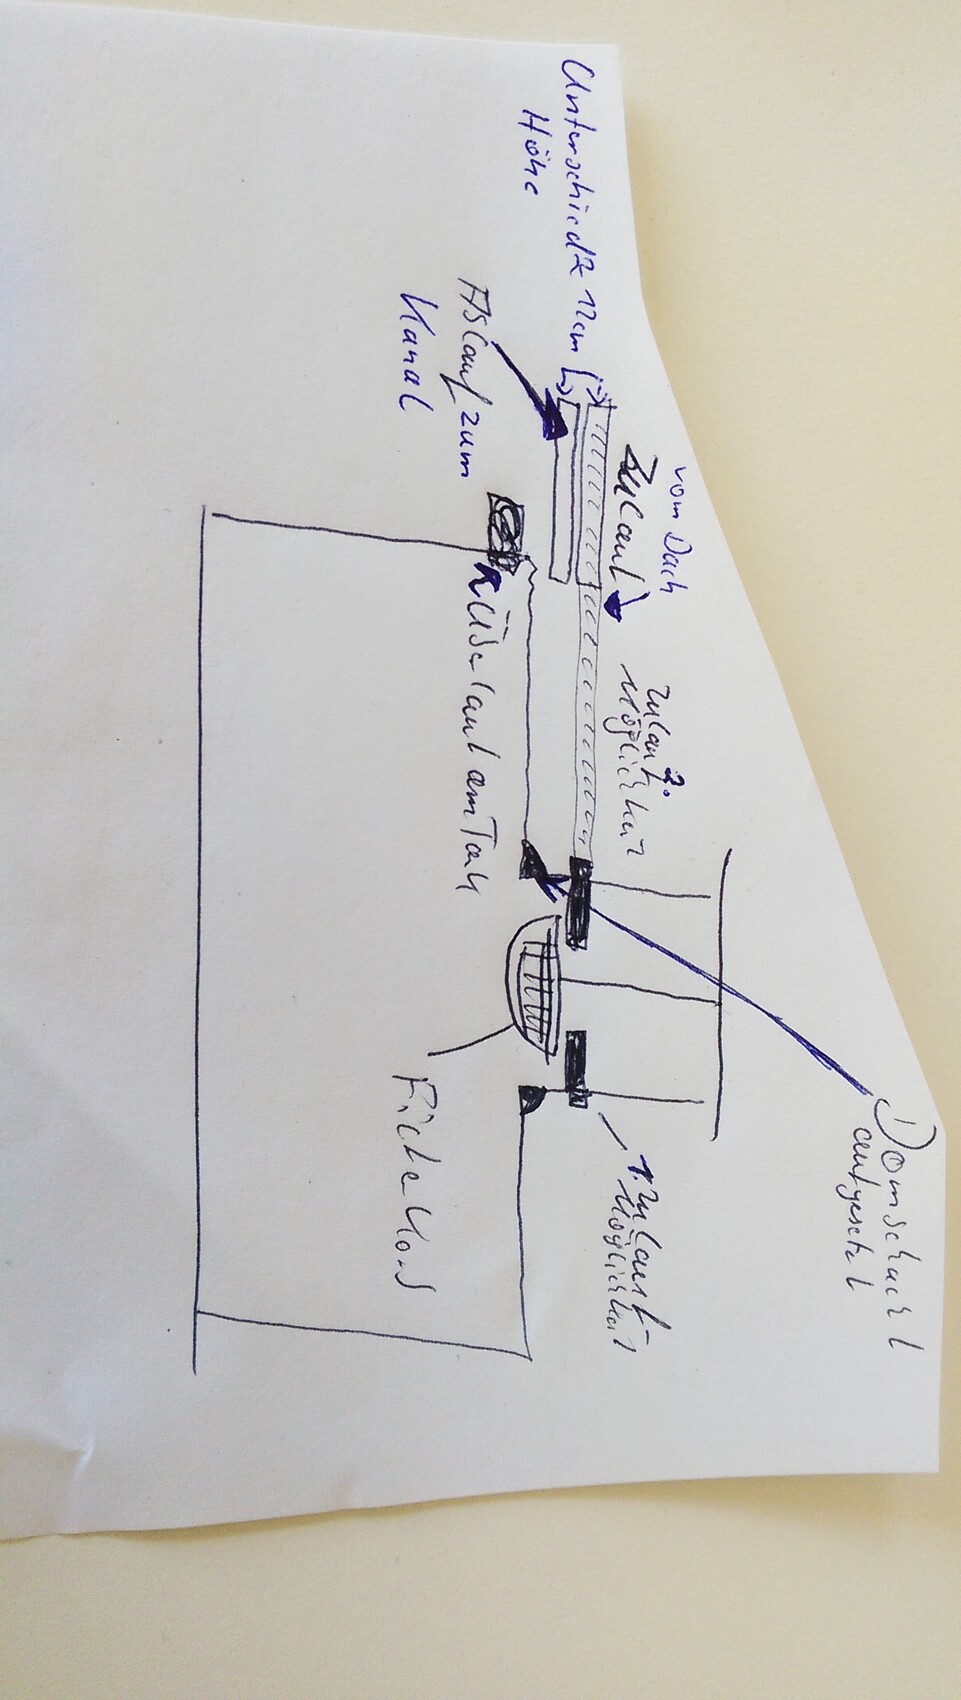 Unterschied 12cm
Höhe
Ablauf zum
Kanal
vom Dach
Zulauf
2.
Zulauf
Möglichkeit
Überlauf am Tank
Domschacht
aufgesetzt
1. Zulauf-
Möglichkeit